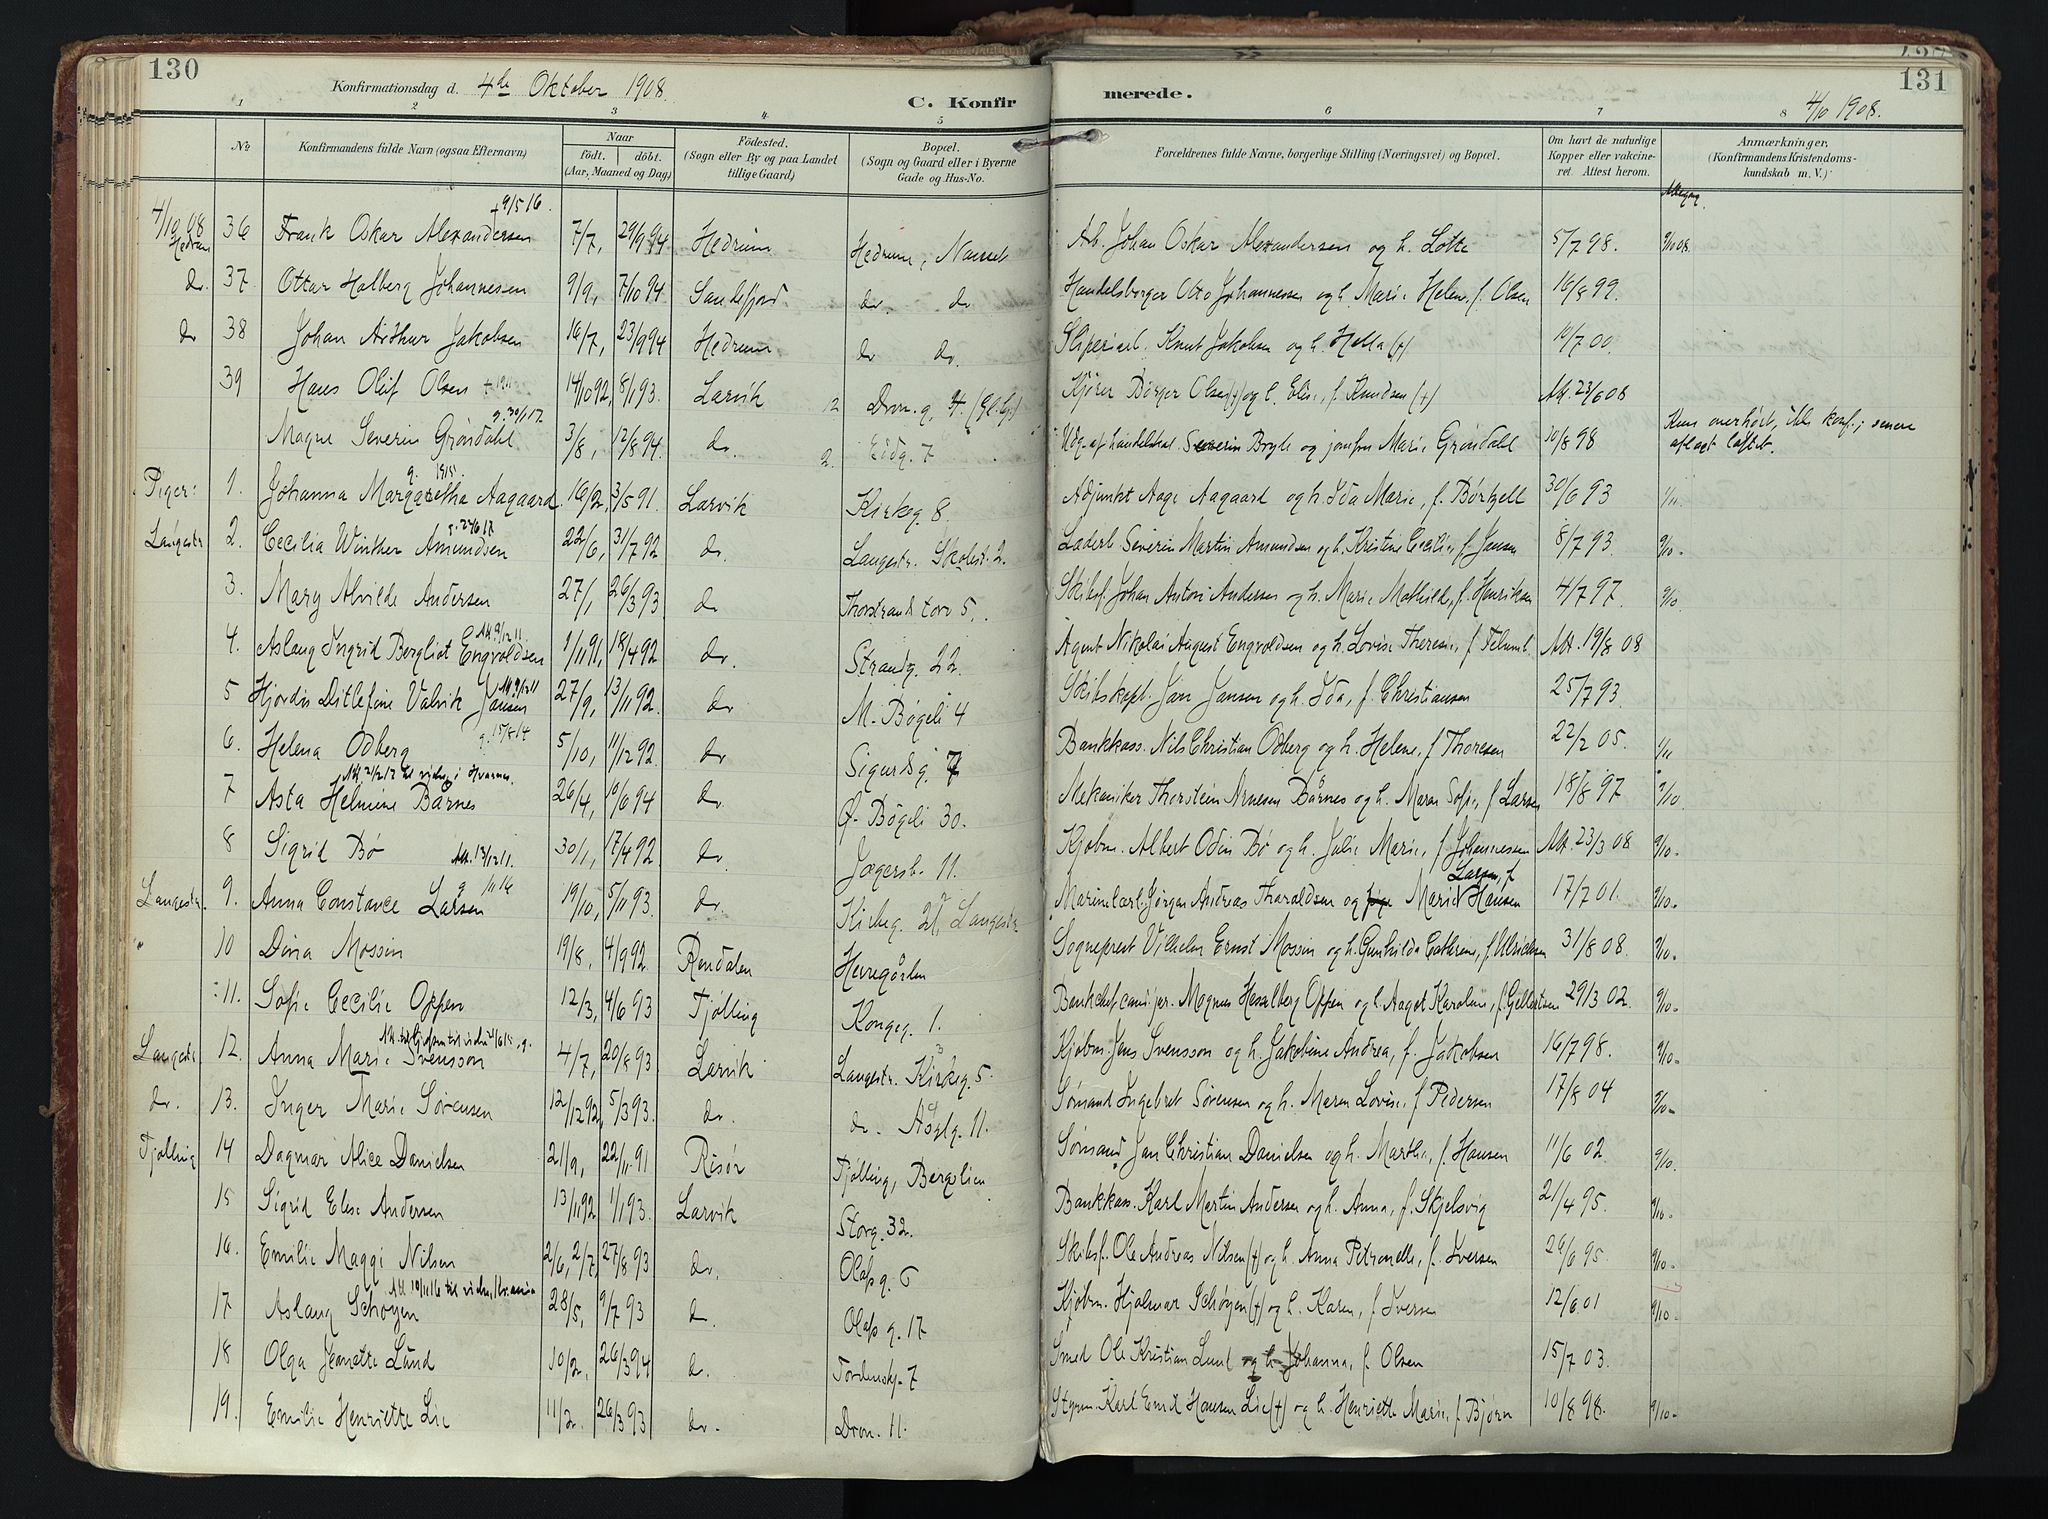 130
Konfirmationsdag d. 4de Oktober 1908.
C. Konfir
merede.
131
4/10 1908.
1 2 3 4 5 6 7 8
No
Konfirmandens fulde Navn (ogsaa Efternavn)
Naar
födt. döbt.
(Aar, Maaned og Dag)
Födested.
(Sogn eller By og paa Landet
tillige Gaard)
Bopæl.
(Sogn og Gaard eller i Byerne
Gade og Hus-No.
Forældrenes fulde Navne, borgerlige Stilling (Næringsvei) og Bopæl.
Om havt de naturlige
Kopper eller vakcine-
ret. Attest herom.
Anmærkninger.
(Konfirmandens Kristendoms-
kundskab m. V.)
+9/5 16.
4/10 08 Hedrum 36 Frank Oskar Alexandersen 7/7, 29/9 94 Hedrum Hedrum, Nanset Arb. Johan Oskar Alexandersen og h. Lotte 5/7 98. 9/10 08.
do. 37 Ottar Holberg Johannessen 9/9, 7/10 94 Sandefjord do. do Handelsborger Otto Johannessen og h. Marie Helene, f. Olsen 16/8 99.
do 38 Johan Arthur Jakobsen 16/7, 23/9 94 Hedrum do do. Sliperiarb. Knut Jakobsen og h. Hella (+) 10/7 00.
39 Hans Olüf Olsen + 1911 14/10 92, 8/1 93. Larvik 12 Dron.g. Kjører Børger Olsen (+) og h. Elise, f. Knudsen (+) Att. 23/6 08
g. 30/1 17.
Magne Severin Grøndahl 3/8, 12/8 94. do. 2. Eidg. 7 Udg. af handelsbet. Severin Bryle og jomfru Marie Grøndahl 10/8 98 Kun overhørt, ikke konf.; senere
aflagt løftet.
g. 1915
Piger: 1. Johanna Margaretha Aagaard 16/2, 3/5 91. Larvik Kirkeg. 8. Adjunkt Aage Aagaard og h. Ida Marie, f. Børtzell 30/6 93 1/11
Langestr 2. Cecilia Winther Amundsen 22/6, 31/7 92. do. Langestr. Skolest. 2. Læderb Severin Martin Amundsen og h. Kristine Cecilie, f. Jansen 8/7 93. 9/10.
3. Mary Alvilde Andersen 27/1, 26/3 93. do Thorstrand torv 5. Skibsf. Johan Anton Andersen og h. Marie Mathilde, f. Henriksen 4/7 97. 9/10.
Att. 9/12 11.
4. Aslaug Ingrid Bergliot Engvoldsen 1/11 91, 18/4 92 do. Strandg. 22. Agent Nikolai August Engvoldsen og h. Lovise Therese, f. Att. 19/8 08
Att. 9/12 11
5 Hjørdis Ditlefine Valvik Jansen 27/9, 13/11 92. do M. Bøgeli 4 Skibskapt. Jan Jansen og h. Ida, f. Christiansen 25/7 93.
g. 15/8 14
6. Helena Odberg 5/10, 11/12 92. do Sigurdsg. 7 Bankkass. Nils Christian Odberg og h. Helene, f. Thoresen 22/2 05. 1/11
Att. 21/2 13 til vielse i Hvarnes.
7 Asta Helmine Barnes 26/4, 10/6 94 do. Ø. Bøgeli 30. Mekaniker Thorstein Arnesen Bårnes og h. Maren Sofie, f. Larsen 18/8 97 9/10.
8 Sigrid Bø Att. 13/12 11. 30/1, 17/4 92. do. Jægersb. 11. Kjøbm. Albert Odin Bø og h. Julie Marie, f. Johannessen Att. 23/3 08 9/10.
Langestr. 9. Anna Constance Larsen 19/10, 5/11 93. do. Kirkeg. Langestr. Marinelærl. Jørgen Andreas Tharaldsen og Marie Larsen, f. Hansen 17/7 01. 9/10.
" 10 Dina Mossin 19/8, 4/9 92. Rendalen Herregården Sogneprest Vilhelm Ernst Mossin og h. Gunhilda Cathrine, f. Ulrichsen 31/8 08. 9/10.
11. Sofie Cecilie Oppen 12/3, 4/6 93 Tjølling Kongeg. 1. Bankchef, cand. jur. Magnus Hesselberg Oppen og h. Aagot Karoline, f. Gjellertsen 29/3 02. 9/10.
Langestr 12. Anna Marie Svensson 4/7, 20/8 93. Larvik Langestr. Kirkeg. 5. Kjøbm. Jens Svensson og h. Jakobine Andrea, f. Jakobsen 16/7 98. 9/10.
do. 13. Inger Marie Sørensen 12/12 92, 5/3 93. do. do. Åsgtg. 11. Sømand Ingebret Sørensen og h. Maren Lovise, f. Pedersen 17/8 04 9/10.
Tjølling 14 Dagmar Alice Danielsen 21/9, 22/11 91 Risør Tjølling, Bergslien Sømand Jan Christian Danielsen og h. Marthe, f. Hansen 11/6 02. 9/10.
15 Sigrid Elise Andersen 13/11 92, 1/1 93. Larvik Storg. 32. Bankkass. Karl Martin Andersen og h. Anna, f. Skjelsvig 21/4 95. 9/10.
16. Emilie Maggi Nilsen 2/6, 2/7, 27/8 93 do. Olafs g. 6 Skibsf. Ole Andreas Nilsen (+) og h. Anna Petronelle, f. Iversen 26/6 95. 9/10.
17 Aslaug Schøyen 28/5, 9/7 93 do. Olafs g. 17 Kjøbm. Hjalmar Schøyen (+) og h. Karen, f. Iversen 12/6 01 9/10.
18 Olga Jeanette Lund 10/2, 26/3 94 do. Tordenskj. 7 Smed Ole Kristian Lund og h. Johanna, f. Olsen 15/7 03.
19. Emilie Henriette Lie 11/2. 26/3 93 do. Dron. 11. Styrm. Karl Emil Hansen Lie (+) og h. Henriette Marie, f. Bjørn 10/8 98. 9/10.